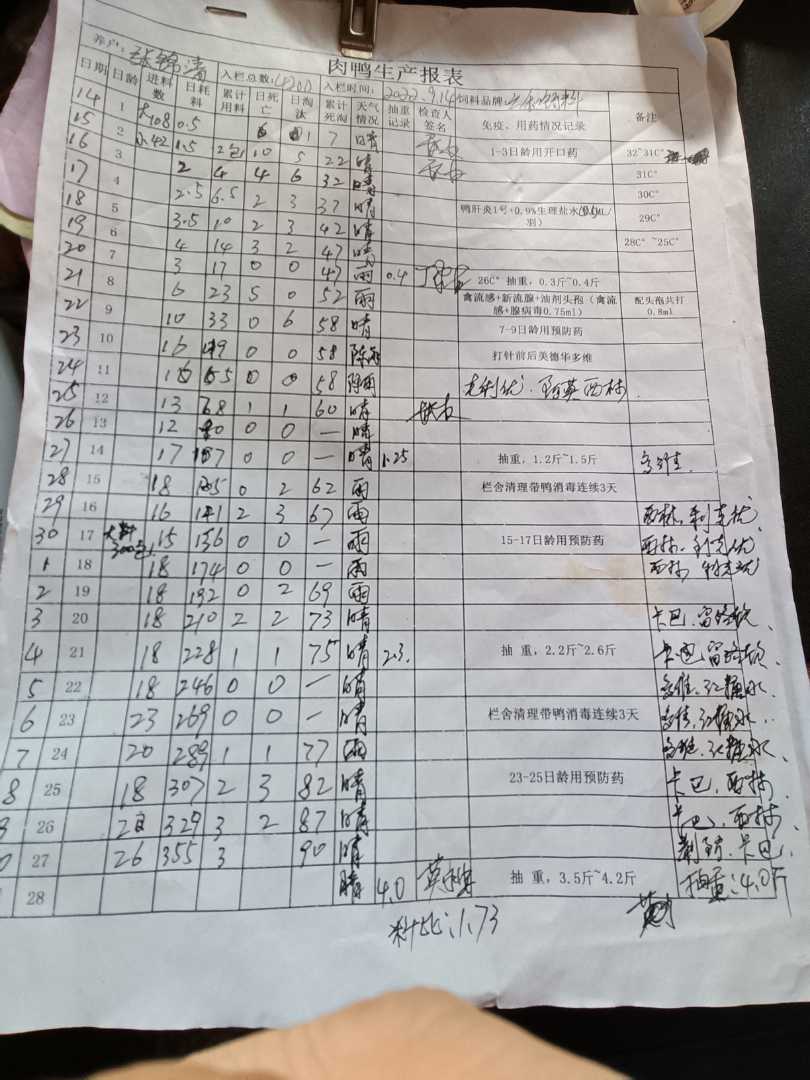 肉鸭生产报表
养户: 张锦清 入栏总数: 4200 入栏时间: 2022.9.14 饲料品牌
日期 日龄 进料数 日耗料 累计用料 日死亡 日淘汰 累计死淘 天气情况 抽重记录 检查人签名 免疫、用药情况记录 备注
14 1 大108 0.5 6 1 7 晴 1-3日龄用开口药 32~31C°
15 2 小42 1.5 2包 10 5 22 晴 31C°
16 3 2 4 4 6 32 晴 30C°
17 4 2.5 6.5 2 3 37 晴 鸭肝炎1号+0.9%生理盐水 羽) 29C°
18 5 3.5 10 2 3 42 晴 28C° ~25C°
19 6 4 14 3 2 47 晴
20 7 3 17 0 0 47 雨 0.4 26C° 抽重,0.3斤~0.4斤
21 8 6 23 5 0 52 雨 禽流感+新流腺+油剂头孢(禽流感+腺病毒0.75ml) 配头孢共打0.8ml
22 9 10 33 0 6 58 晴 7-9日龄用预防药
23 10 16 49 0 0 58 阵雨 打针前后美德华多维
24 11 16 65 0 0 58 阵雨
25 12 13 78 1 1 60 晴
26 13 12 90 0 0 — 晴
27 14 17 107 0 0 — 晴 1.25 抽重,1.2斤~1.5斤 多维
28 15 18 125 0 2 62 雨 栏舍清理带鸭消毒连续3天
29 16 16 141 2 3 67 雨 西林,利克优
30 17 大料300包 15 156 0 0 — 雨 15-17日龄用预防药 西林、利克优
1 18 18 174 0 0 — 雨 西林
2 19 18 192 0 2 69 雨
3 20 18 210 2 2 73 晴 卡巴
4 21 18 228 1 1 75 晴 2.3 抽 重,2.2斤~2.6斤 卡巴
5 22 18 246 0 0 — 晴 多维、红糖水
6 23 23 269 0 0 — 晴 栏舍清理带鸭消毒连续3天 多维、红糖水
7 24 20 289 1 1 77 雨 多维、红糖水
8 25 18 307 2 3 82 晴 23-25日龄用预防药 卡巴,西林
26 22 329 3 2 87 晴 卡巴,西林
27 26 355 3 90 晴 卡巴
28 晴 4.0 抽 重,3.5斤~4.2斤 抽重:4.0斤
料比:1.73